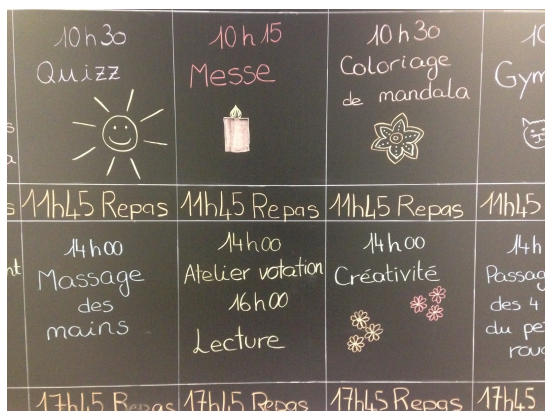 10h30
Quizz
10h15
Messe
10h30
Coloriage
de mandala
Gym
11h45 Repas
11h45 Repas
11h45 Repas
11h45
14h00
Massage
des
mains
14h00
Atelier votation
16h00
Lecture
14h00
Créativité
14h
Passag
des 4
du pe
rou
17h45 Repas
17h45 Repas
17h45 Repas
17h45